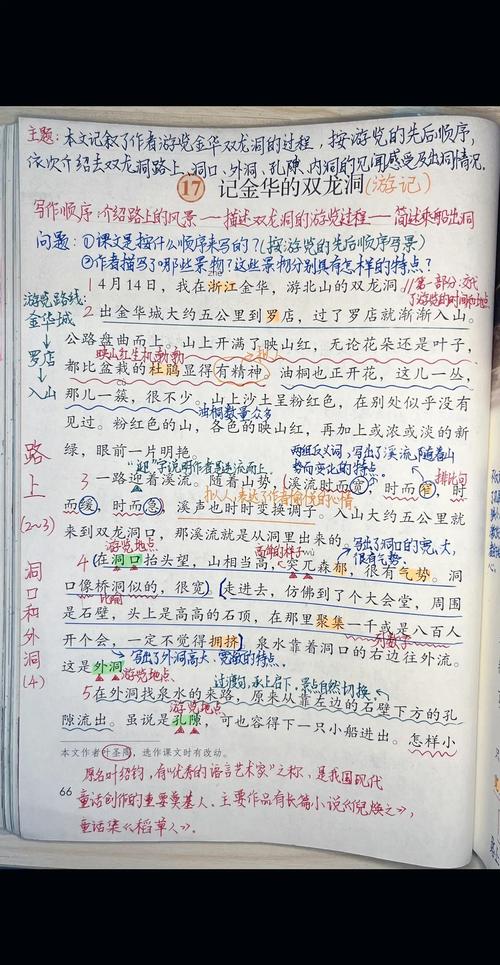 主题:本文记叙了作者游览金华双龙洞的过程,按游览的先后顺序,
依次介绍去双龙洞路上、洞口、外洞、孔隙、内洞的见闻感受及出洞情况。
17 记金华的双龙洞(游记)
写作顺序:介绍路上的风景——描述双龙洞的游览过程——简述乘船出洞
问题:①课文是按什么顺序来写的?(按游览的先后顺序写景)
②作者描写了哪些景物?这些景物分别具有怎样的特点?
1 4月14日,我在浙江金华,游北山的双龙洞。
第一部分:交代了游览的时间和地点
游览路线:
金华城
↓
罗店
↓
入山
2 出金华城大约五公里到罗店,过了罗店就渐渐入山。
公路盘曲而上。山上开满了映山红,无论花朵还是叶子,
映山红生机勃勃
都比盆栽的杜鹃显得有精神。油桐也正开花,这儿一丛,
那儿一簇,很不少。山上沙土呈粉红色,在别处似乎没有
油桐数量众多
见过。粉红色的山,各色的映山红,再加上或浓或淡的新
绿,眼前一片明艳。
路上
(2~3)
两组反义词,写出了溪流随着山
势而变化的特点。
"迎"字说明作者是逆流而上。
排比句
3 一路迎着溪流。随着山势,溪流时而宽,时而窄,时
而缓,时而急,溪声也时时变换调子。入山大约五公里就
拟人,表达了作者愉悦的心情
来到双龙洞口,那溪流就是从洞里出来的。
游览地点
高耸的样子
wù
写出了洞口的宽、大,
很有气势。
4 在洞口抬头望,山相当高,突兀森郁,很有气势。洞
口像桥洞似的,很宽。走进去,仿佛到了个大会堂,周围
比喻
是石壁,头上是高高的石顶,在那里聚集一千或是八百人
列数字
开个会,一定不觉得拥挤。泉水靠着洞口的右边往外流。
写出了外洞高大、宽敞的特点。
这是外洞。
游览地点
洞口和外洞
(4)
过渡句,承上启下,景点自然切换。
5 在外洞找泉水的来路,原来从靠左边的石壁下方的孔
游览地点
隙流出。虽说是孔隙,可也容得下一只小船进出。怎样小
本文作者叶圣陶,选作课文时有改动。
原名叶绍钧,有"优秀的语言艺术家"之称,是我国现代
66
童话创作的重要奠基人。主要作品有长篇小说《倪焕之》,
童话集《稻草人》。